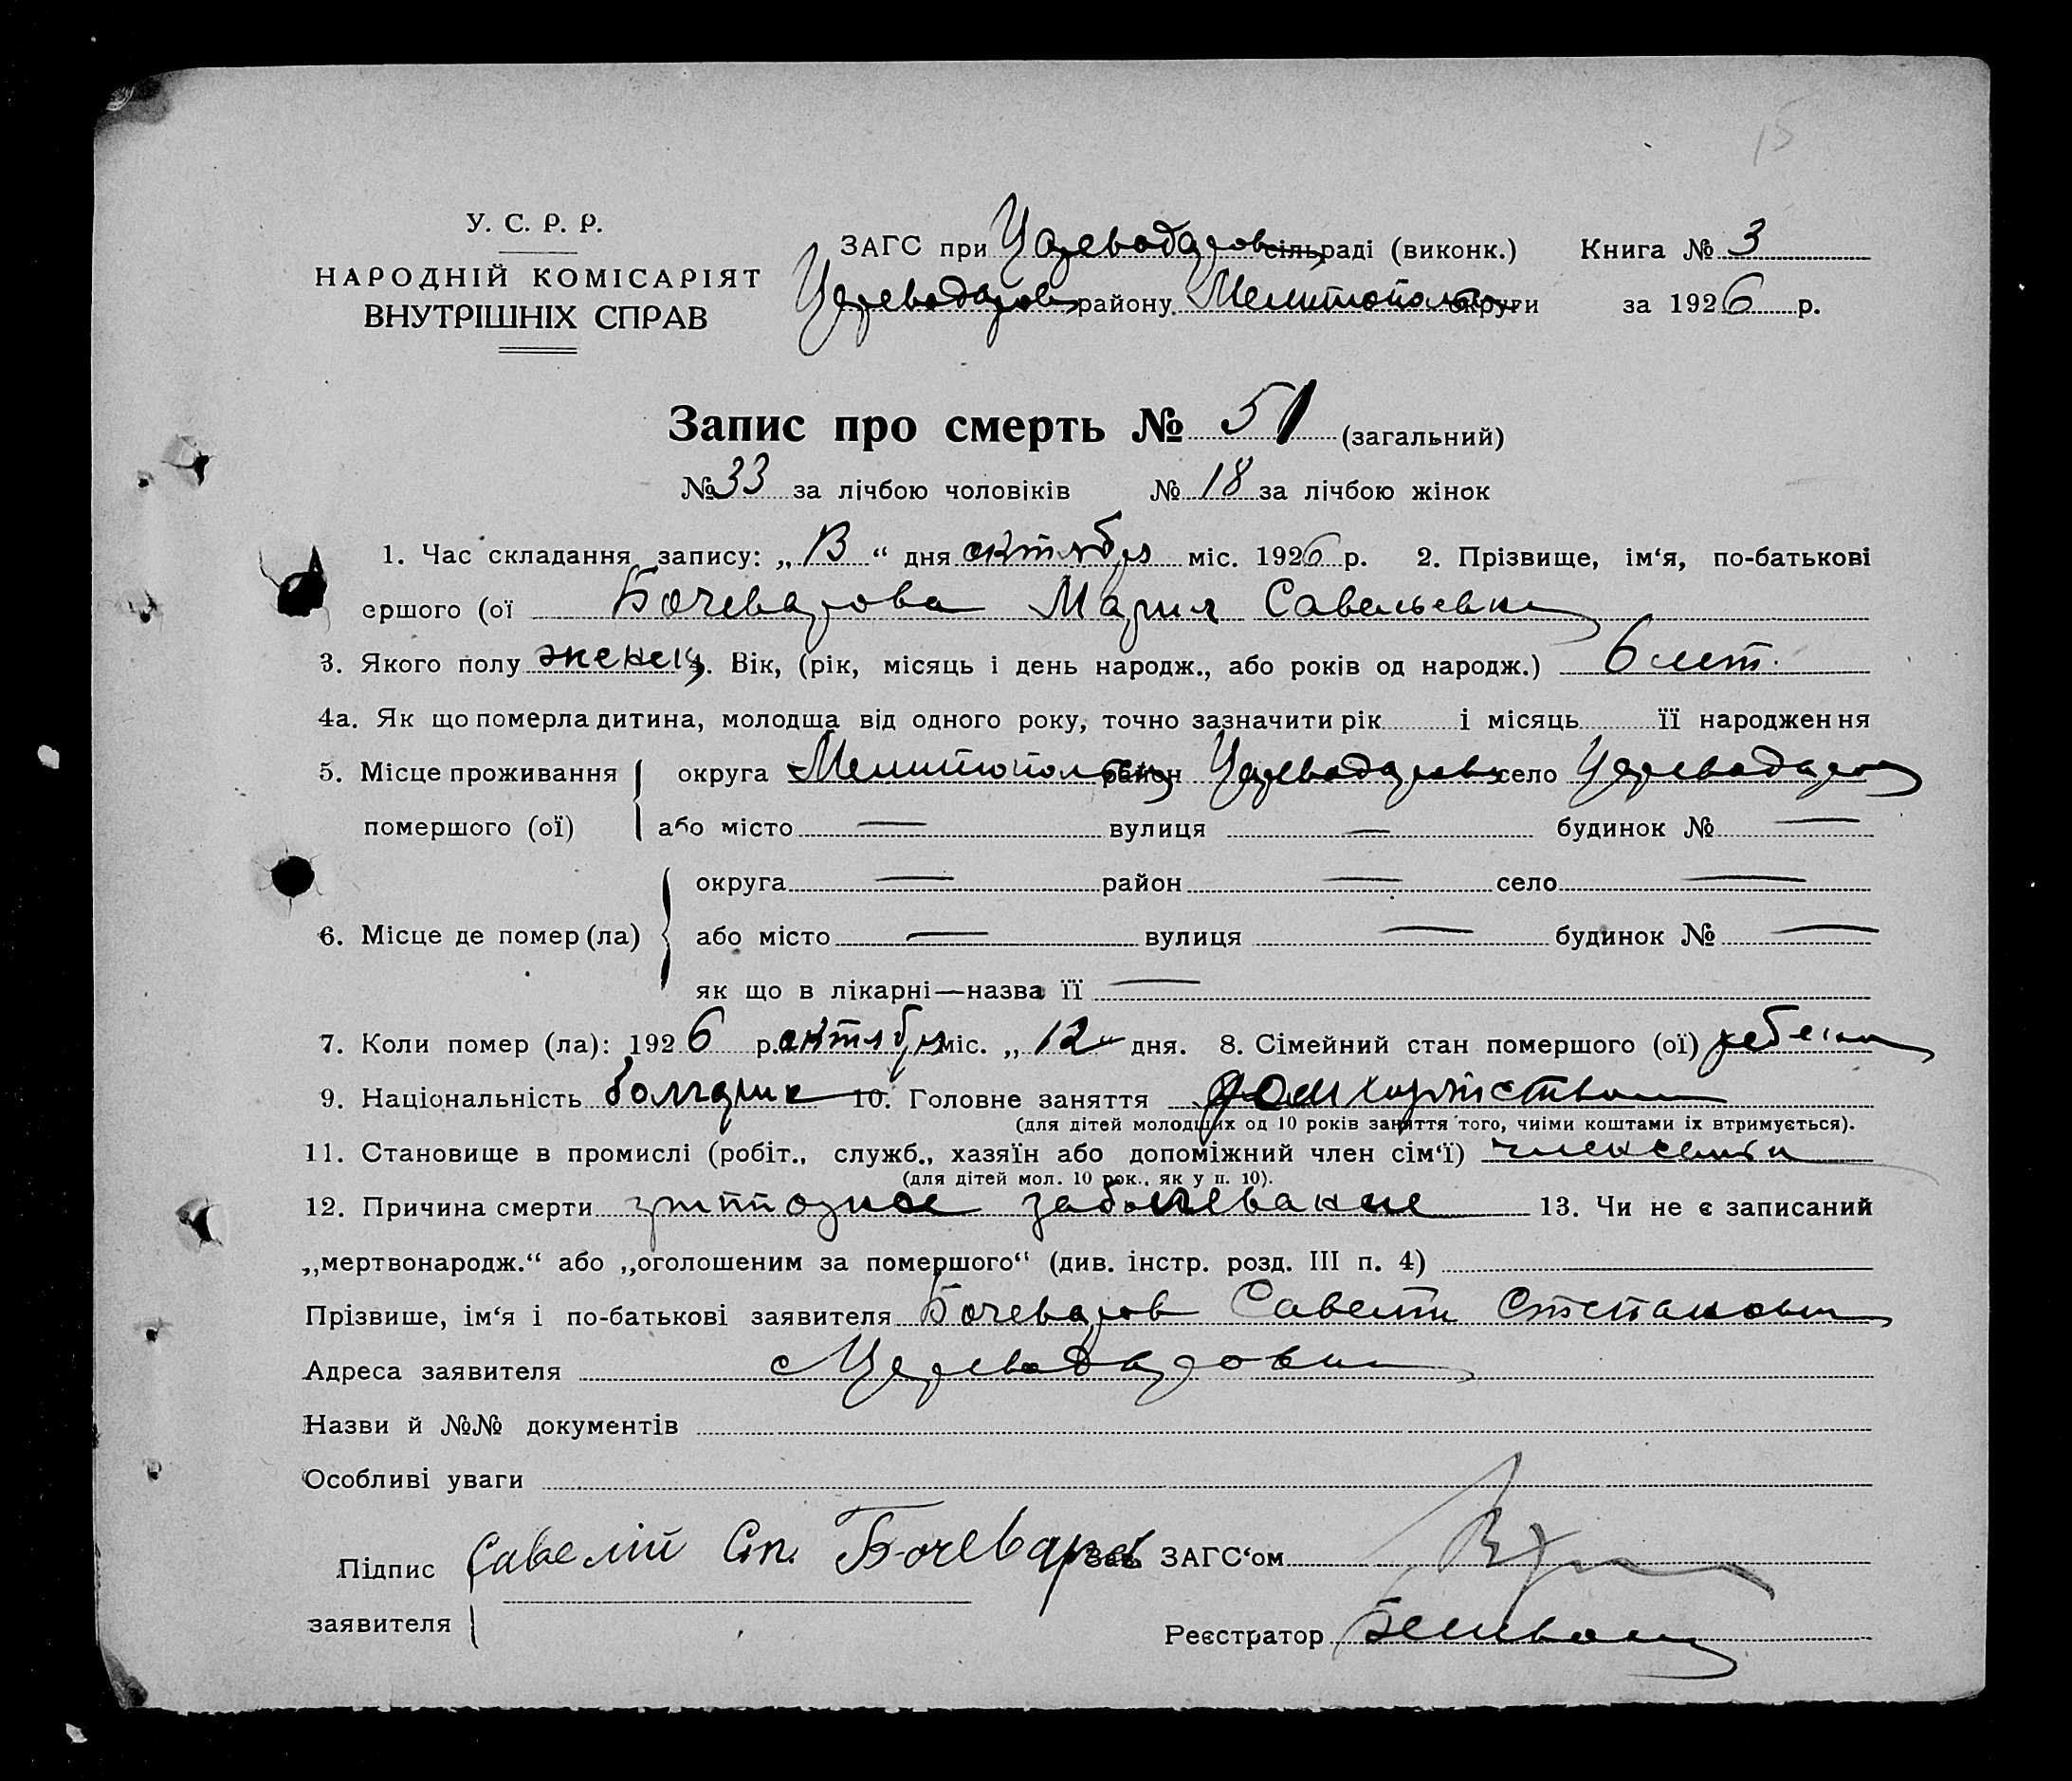 15
У. С. Р. Р.
НАРОДНІЙ КОМІСАРІЯТ
ВНУТРІШНІХ СПРАВ
ЗАГС при Цареводаровсільраді (виконк.) Книга № 3
Цареводаров району Мелитополь округи за 1926 р.
Запис про смерть № 51 (загальний)
№ 33 за лічбою чоловіків № 18 за лічбою жінок
1. Час складання запису: „13“ дня октября міс. 1926 р. 2. Прізвище, ім‘я, по-батькові
ершого (ої Бочеварова Мария Савельевна
3. Якого полу женск. Вік, (рік, місяць і день народж., або років од народж.) 6 лет.
4а. Як що померла дитина, молодша від одного року, точно зазначити рік і місяць її народження
5. Місце проживання округа Мелитополь район Цареводаровск село Цареводаровка
помершого (ої) або місто — вулиця — будинок № —
округа — район — село —
6. Місце де помер (ла) або місто — вулиця — будинок № —
як що в лікарні—назва її —
7. Коли помер (ла): 1926 р. октября міс. „12“ дня. 8. Сімейний стан помершого (ої) ребенок
9. Національність болгарка 10. Головне заняття
(для дітей молодших од 10 років заняття того, чиїми коштами їх втримується).
11. Становище в промислі (робіт., служб., хазяїн або допоміжний член сім‘ї) член семьи
(для дітей мол. 10 рок., як у п. 10).
12. Причина смерти заболевание 13. Чи не є записаний
„мертвонародж.“ або „оголошеним за помершого“ (див. інстр. розд. III п. 4)
Прізвище, ім‘я і по-батькові заявителя Бочеваров Савелий Степанович
Адреса заявителя с Цареводаровка
Назви й №№ документів
Особливі уваги
Підпис Савелий Сп. Бочеваров Зав. ЗАГС‘ом
заявителя
Реєстратор